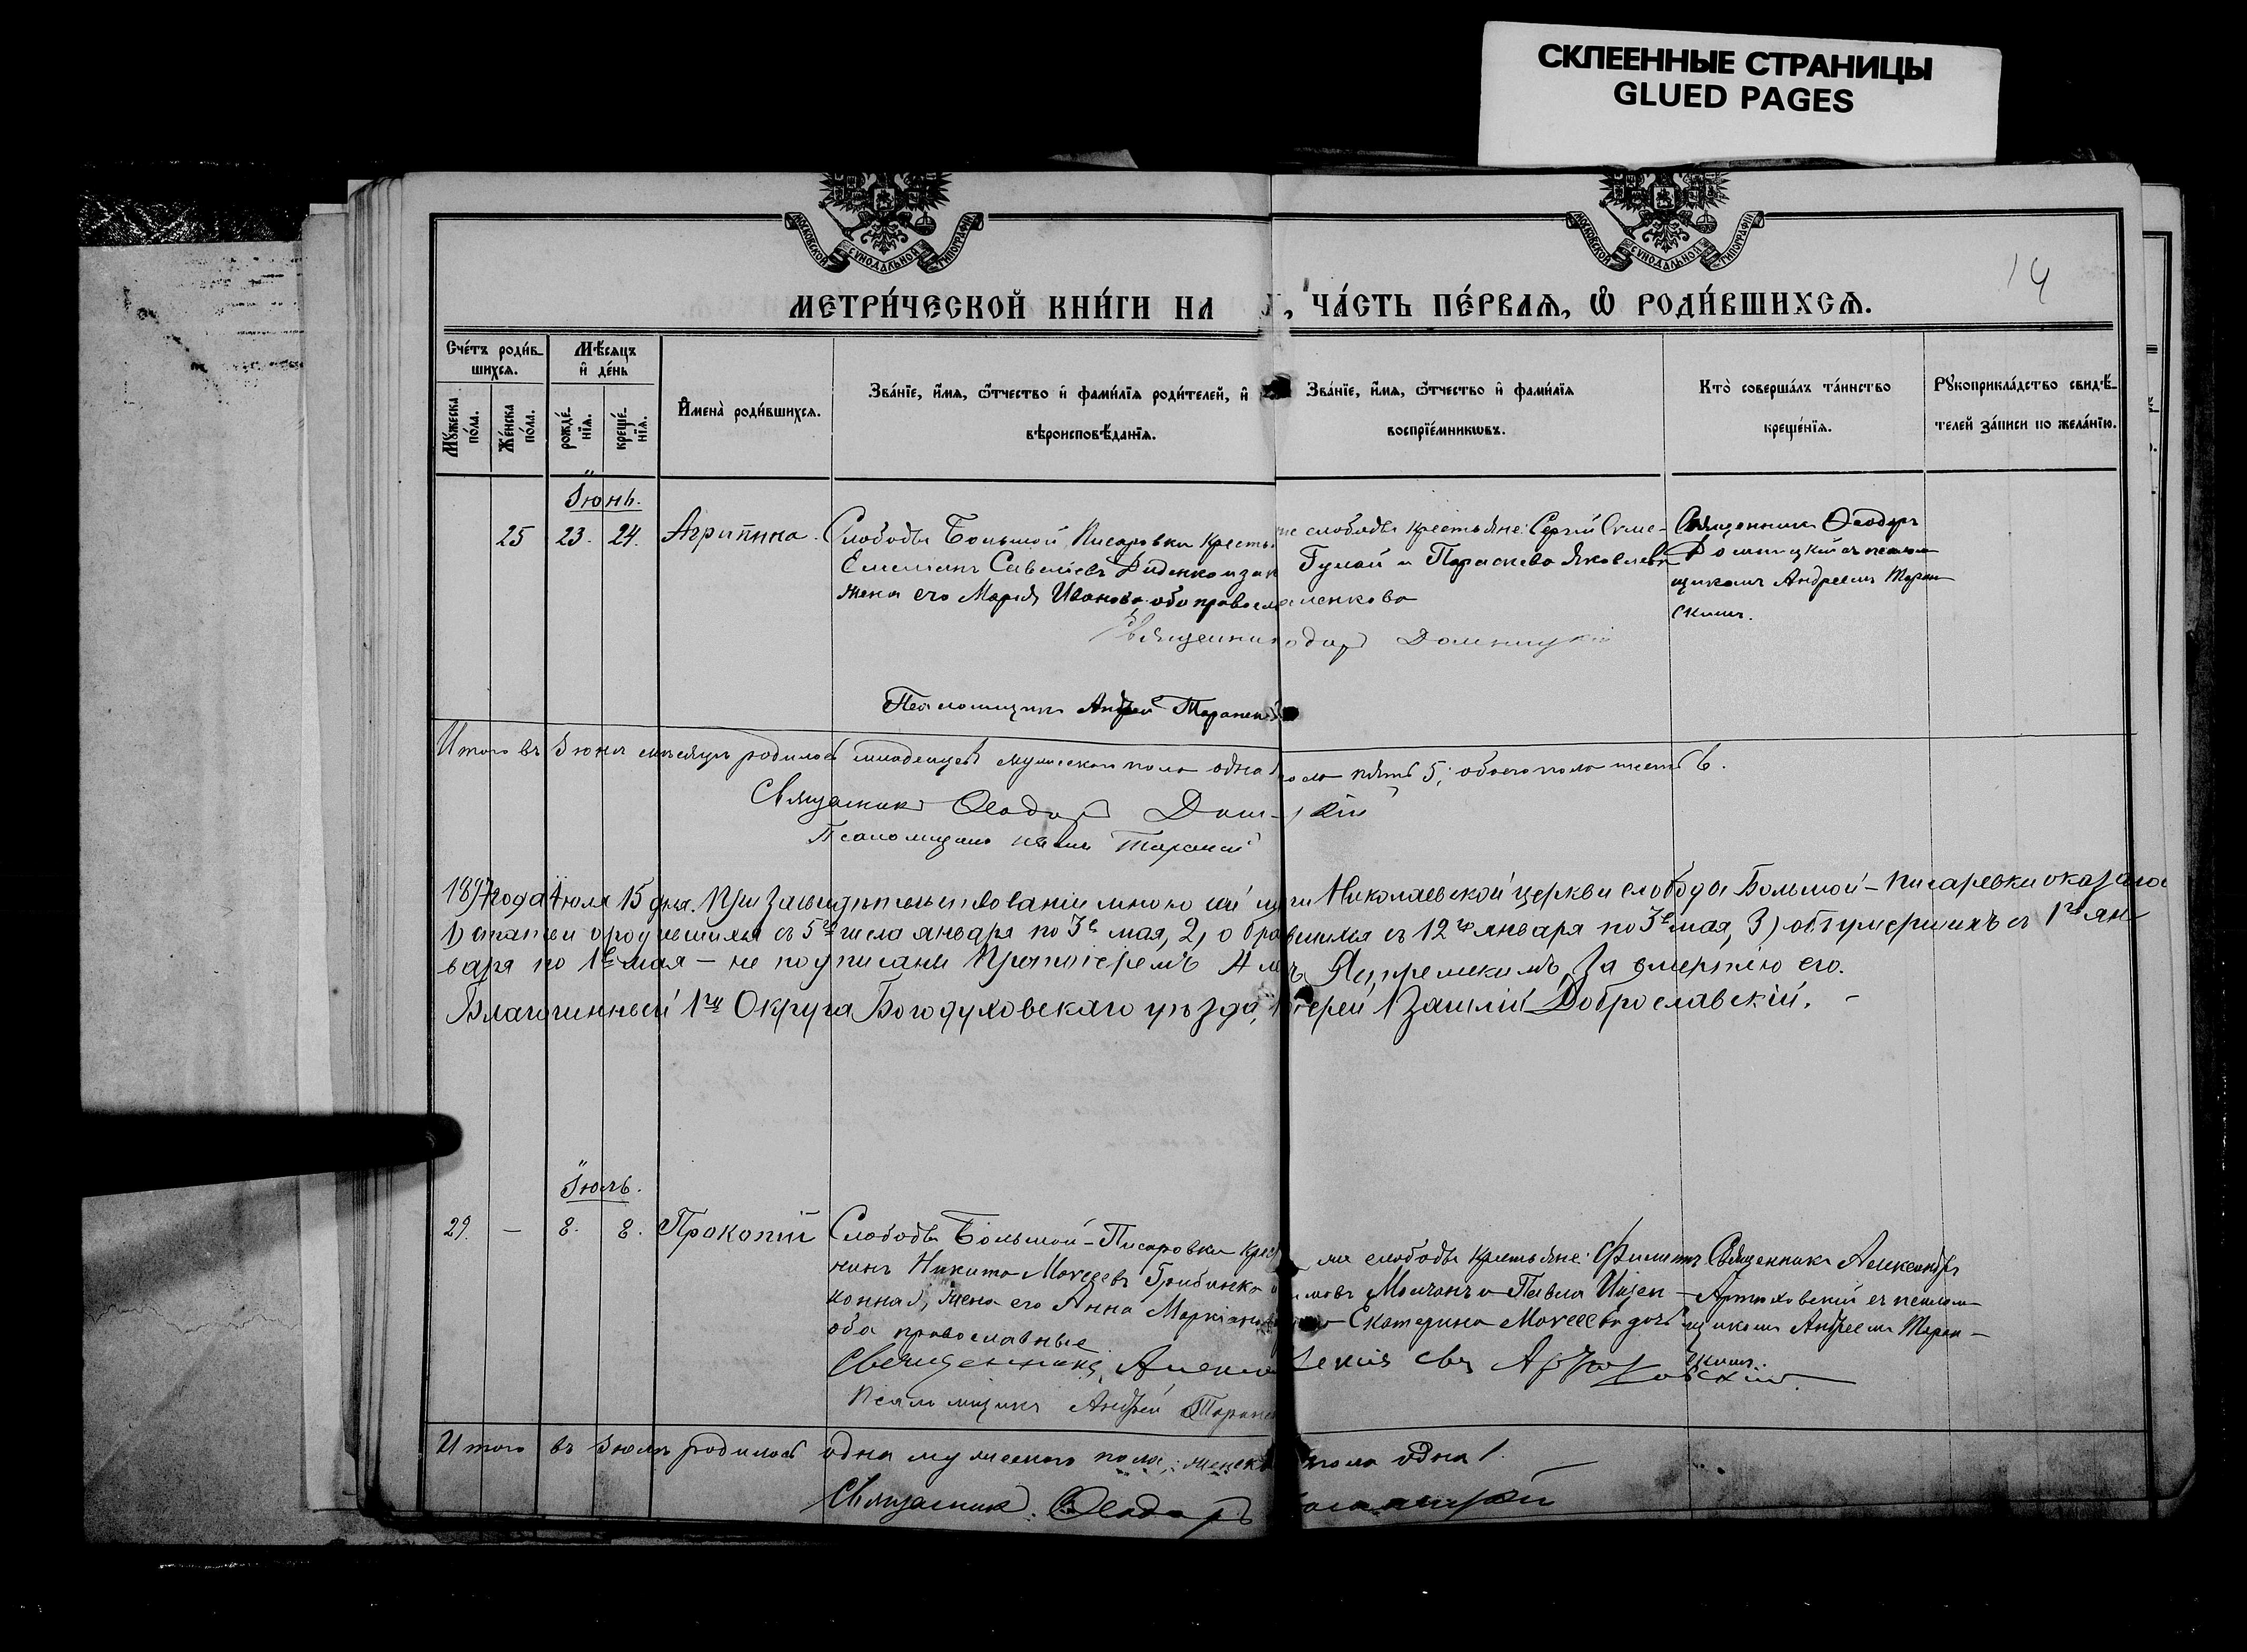 СКЛЕЕННЫЕ СТРАНИЦЫ
GLUED PAGES
МОСКОВСКОЙ СѴНОДАЛЬНОЙ ТИПОГРАФІИ
МОСКОВСКОЙ СѴНОДАЛЬНОЙ ТИПОГРАФІИ
14
МЕТРИ́ЧЕСКОЙ КНИ́ГИ НА , ЧА́СТЬ ПЕ́РВАЯ, Ѽ РОДИ́ВШИХСЯ.
Счéтъ роди́в-
шихся.
Мѣ́сяцъ
и҆ дéнь
Мꙋ́жеска
пóла.
Жéнска
пóла.
рождé-
нїя.
крещé-
нїя.
И҆менà роди́вшихся.
Звáнїе, и҆́мя, ѻ҆́тчество и҆ фами́лїя роди́телей, и҆
вѣроисповѣ́данїя.
Звáнїе, и҆́мя, ѻ҆́тчество и҆ фами́лїя
воспрїéмникωвъ.
Ктò совершáлъ тáинство
крещéнїя.
Рꙋкоприклáдство свидѣ́-
телей зáписи по желáнїю.
Іюнь.
25 23. 24. Агрипина.
Слободы Большой Писаровки Кресть
Емельянъ Савельевъ Диденко и зак
жена его Марія Иванова, оба правосл
же слободы крестьяне: Сергій Семе-
Гулай и Параскева Яковлева
ленкова
Священникъ Ѳеодоръ
Домницкій съ псалом-
щикомъ Андреемъ Таран-
скимъ.
Священник одоръ Домницкій
Псаломщикъ Андрей Таранск
Итого въ Іюнѣ мѣсяцѣ родилось младенцевъ мужескаго пола одна пола пять 5; обоего пола шесть 6.
Священникъ Ѳеодоръ Дом кій
Псаломщикъ Таранскій
1897 года Іюля 15 дня. При засвидѣтельствованіи мною сей книги Николаевской церкви слободы Большой-Писаревки оказалос
1) статьи о родившихся съ 5го числа января по 3е мая, 2) о бравшихся съ 12го января по 3е мая, 3) объ умершихъ съ 1го ян-
варя по 1е мая – не подписаны Протоіереемъ за смертію его.
Благочинный 1го Округа Богодуховскаго уѣзда, Іерей Доброславскій. –
Іюль.
29. – 8. 8. Прокопій
Слободы Большой-Писаровки крес
нинъ Никита Моѵсеевъ Грибинко
конная, жена его Анна Маркіанов
оба православные
ма слободы крестьяне: Филиппъ
мовъ Молчанъ и Павла
Екатерина Моѵсеева дочь
Священникъ Александръ
Артюховскій съ псалом-
щикомъ Андреемъ Таран-
скимъ.
Священникъ Алекса
Псаломщикъ Андрей Таранск
Итого въ Іюлѣ родилось одна мужескаго пола, женск пола одна 1.
Священникъ Ѳеодоръ Домницкій